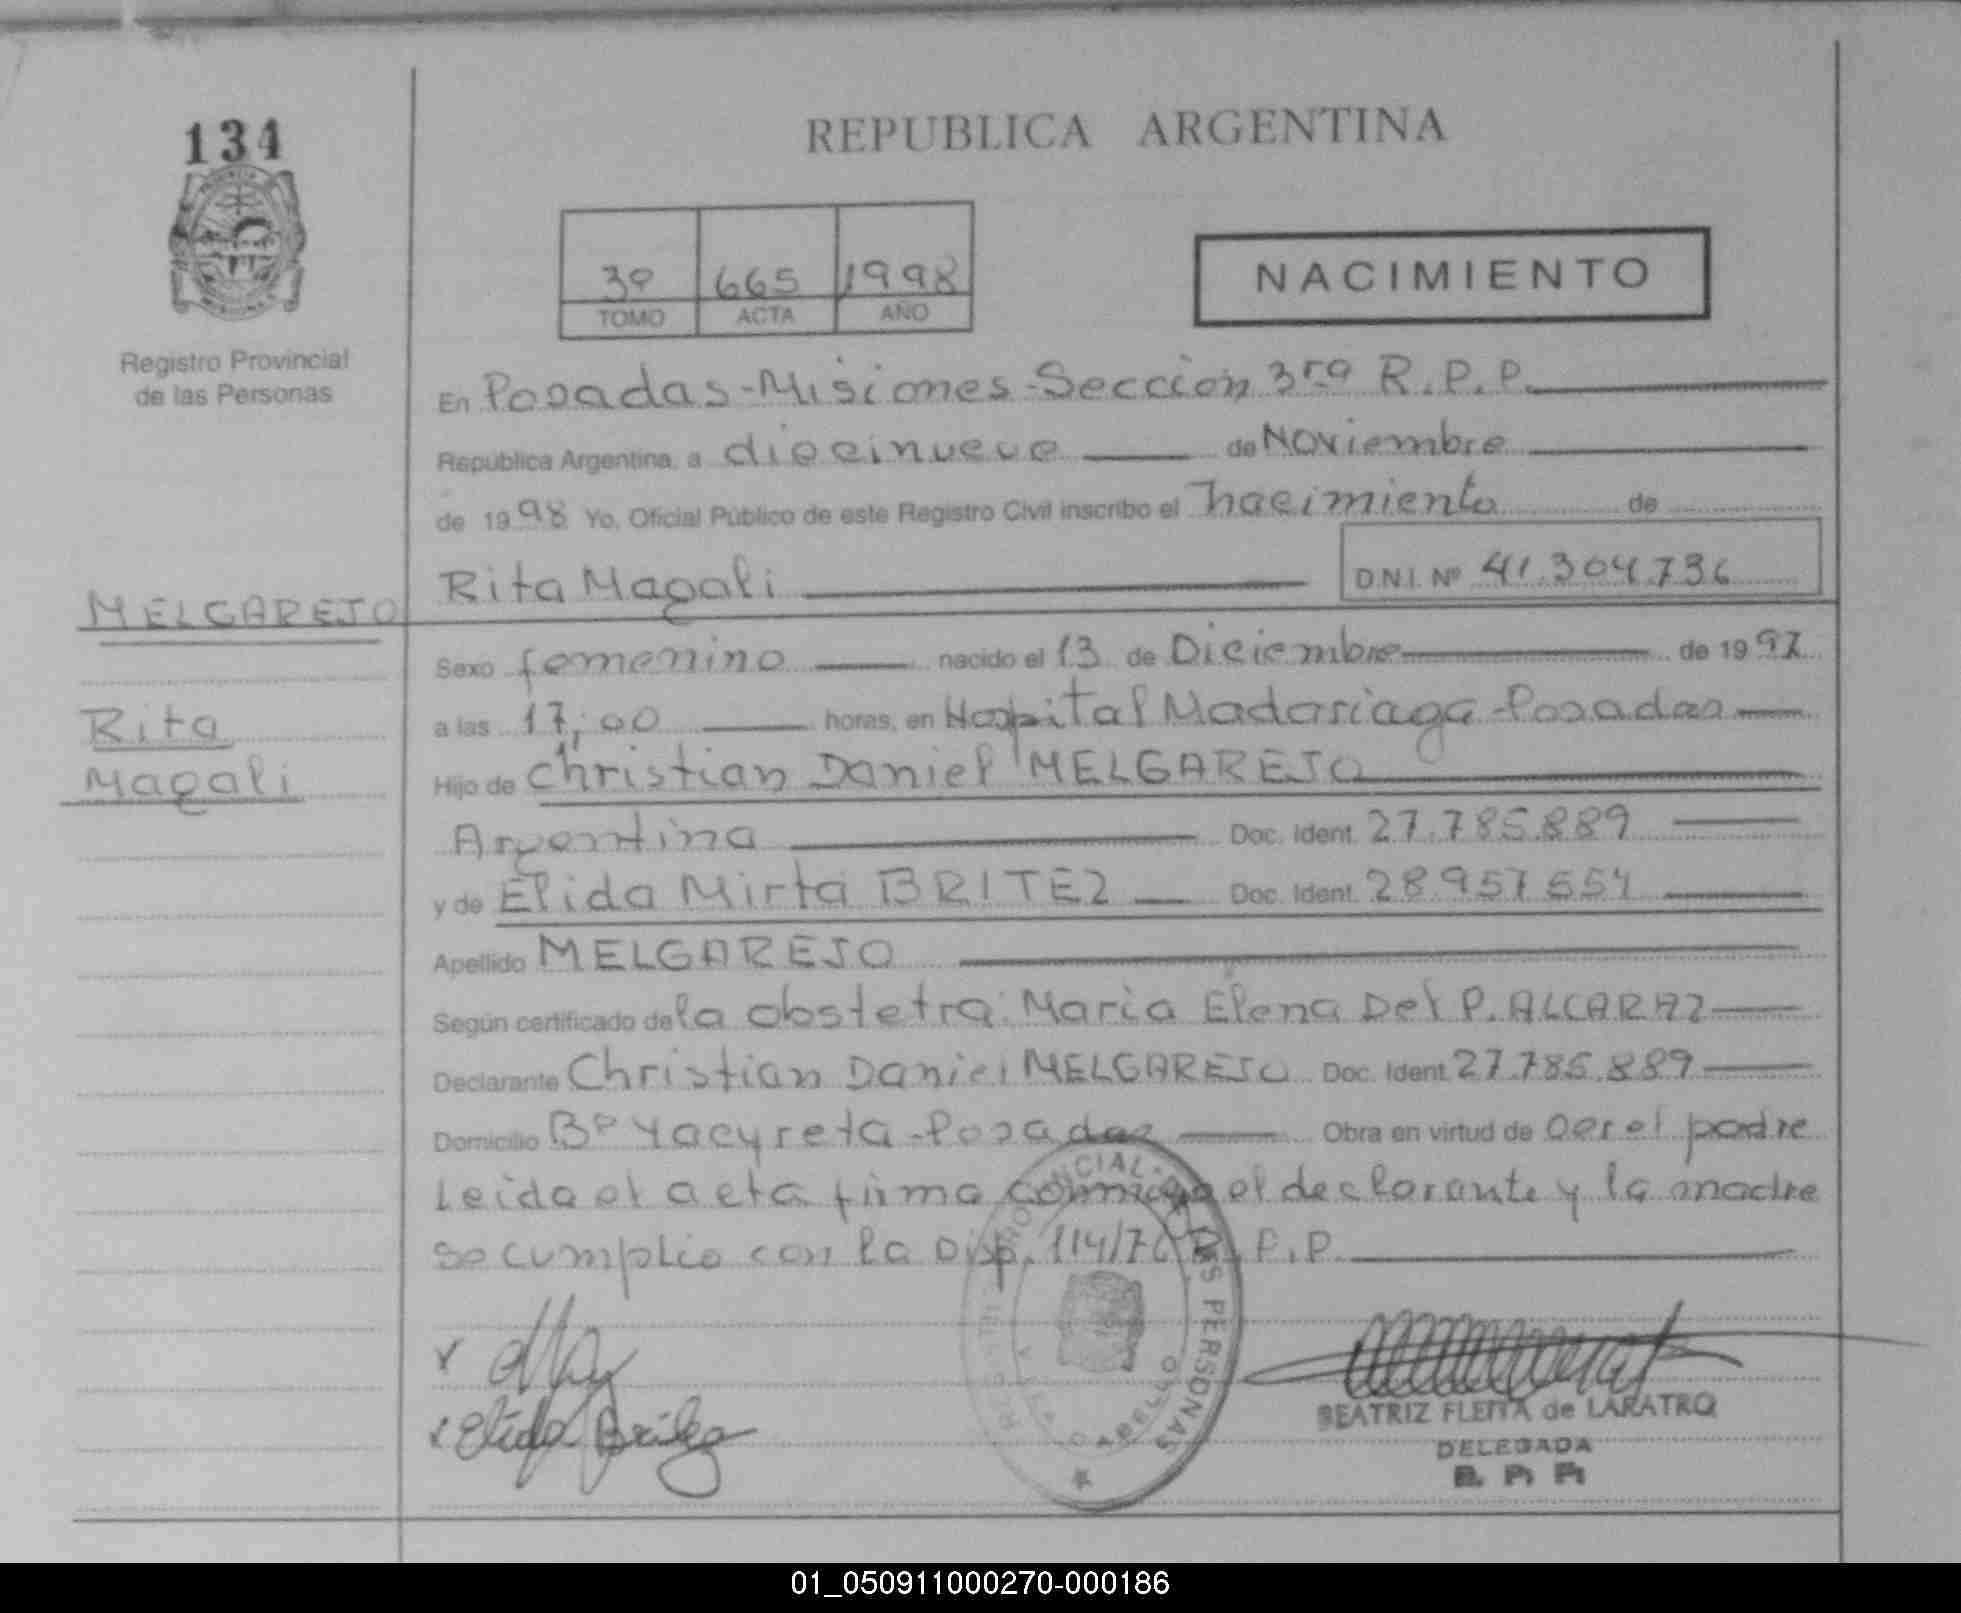 134
REPUBLICA ARGENTINA
3º 665 1998
TOMO ACTA AÑO
NACIMIENTO
Registro Provincial
de las Personas
En Posadas-Misiones-Sección 3ra R.P.P.
República Argentina, a diecinueve de Noviembre
de 1998 Yo, Oficial Público de este Registro Civil inscribo el nacimiento de
Rita Magali D.N.I. Nº 41.304.736
MELGAREJO
Rita
Magali
Sexo femenino nacido el 13 de Diciembre de 1997
a las 17,00 horas, en Hospital Madariaga-Posadas
Hijo de Christian Daniel MELGAREJO
Argentina Doc. Ident. 27.785.889
y de Elida Mirta BRITEZ Doc. Ident. 28.957.554
Apellido MELGAREJO
Según certificado de la obstetra: Maria Elena Del P. ALCARAZ
Declarante Christian Daniel MELGAREJO Doc. Ident. 27.785.889
Domicilio Bº Yacyreta-Posadas Obra en virtud de ser el padre
Leida el acta firma conmigo el declarante y la madre
se cumplio con la Disp. 114/76 R.P.P.
Elida Britez
PERSONAS
BEATRIZ FLEITA de LARATRO
DELEGADA
R. P. P.
01_050911000270-000186